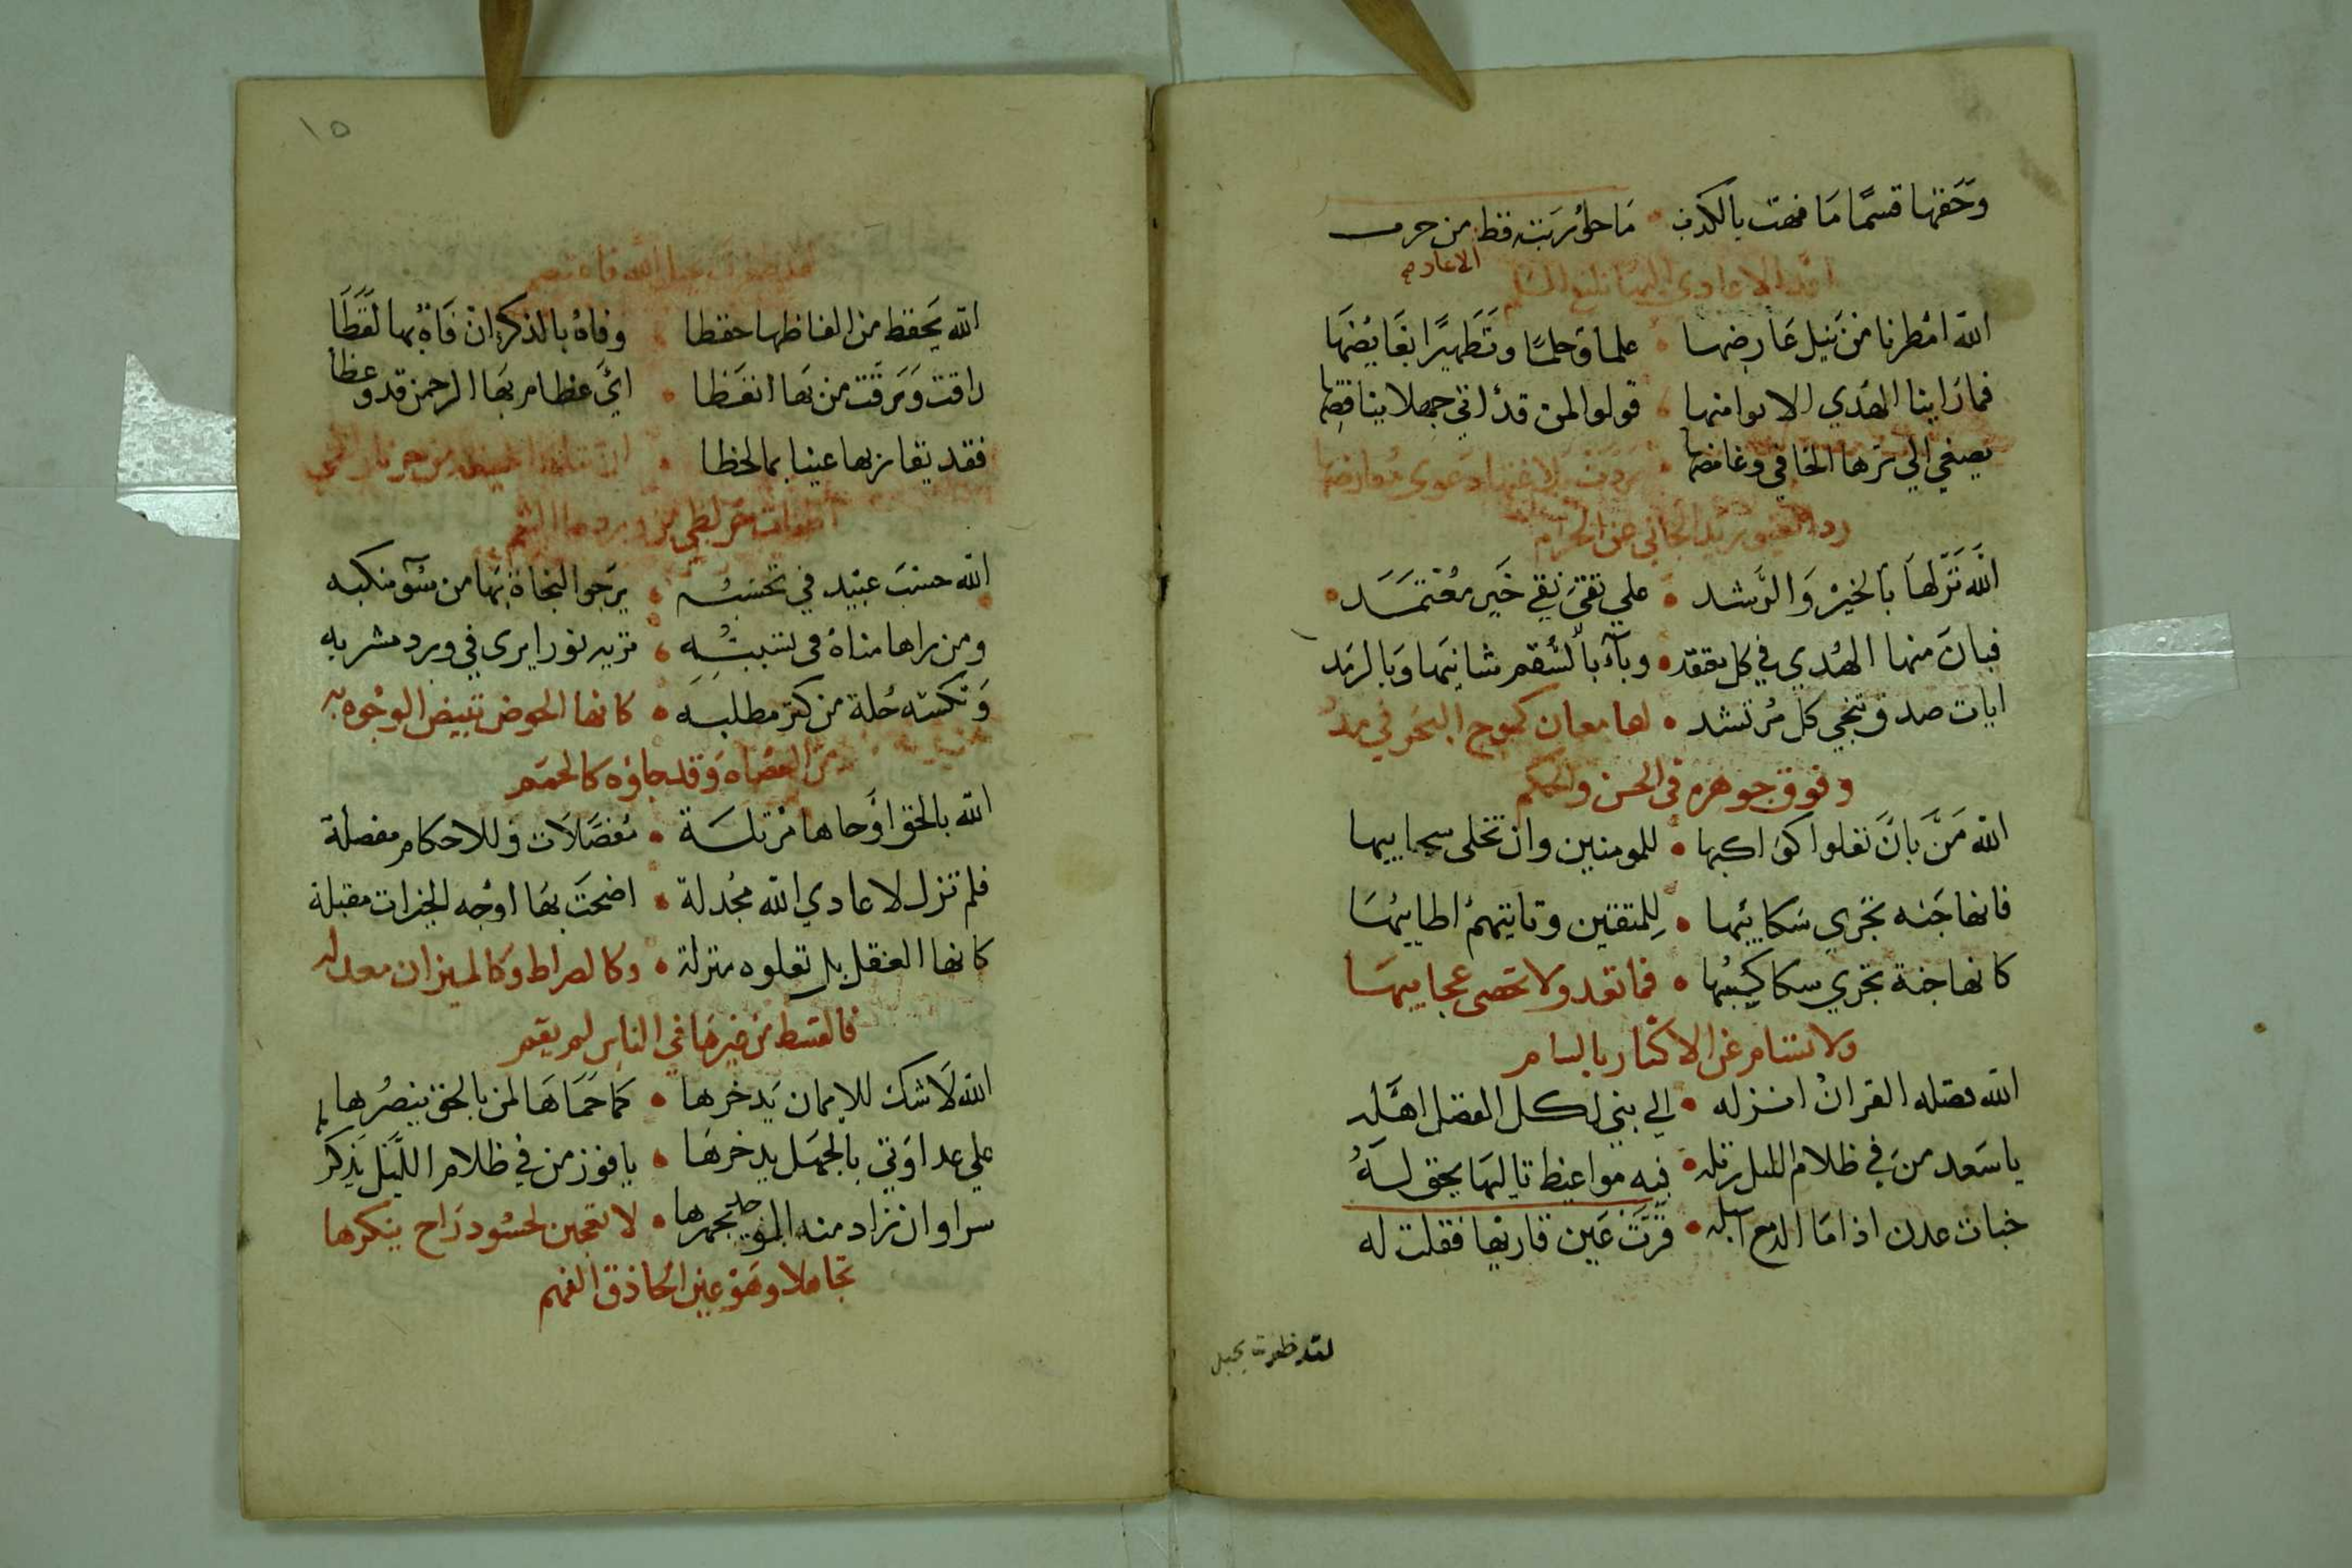 وَحَقها قسمًا مَا فهت بالكذب • مَا حلوربت قط من حرب
الاعادي
اعدا الاعادي اليها ملقي السلم
الله امْطرنا من نيل عَارضها • علما وَحلمًا وتَطَهيرًا بفَايضهَا
فما رَاينا الهُدي الا بوامضها • قولوا لمن قدْ اتي جهلا يناقضها
يصغي الي سرها الخافي وغامضها • ردت بلاغتها دعوي معارضها
رد الغيور يد الجاني عن الحرم
الله نَزلهَا بالخيْر وَالرَّشد • علي تقيّ نقي خَير مُعْتمَد
فبان منها الهُدي في كل معتقد • وبآء بالسُّقم شانيهَا وَبالرمَد
ايات صدق تنجي كل مُرتشد • لها معان كموج البَحر في مددٍ
وفوق جوهره في الحسن والحكم
الله مَنَّ بانَ تعلوا كوَاكبها • للمومنين وان تخلى سحاييها
فانها جَنه تجْري سَكاييها • لِلمتقين وتاتيهمْ اطاييهَا
كانها جنة تجري سكاكيبُها • فما تعد ولا تحصى عجاييهَا
ولا تسام عَن الاكثار بالسام
الله فصله القرانُ انزله • الي نبي لكل الفضل اهَّله
يا سَعد منَ في ظلام الليل رتله • فيه مواعيظ تاليهَا يحق لهُ
جنات عدن اذا مَا الدمع اسبله • قرَّت عَين قاريها فقلت له
لقد ظفرت بحبل
١٥
لقد ظفرت بحبل الله فاعتصم
الله يَحفظ من الفاظها حفظا • وفاهُ بالذكر انْ فَاهُ بها لفَظَا
راقت وَرقّت من بهَا اتعَظا • ايَّ عظام بهَا الرحمن قد وعظا
فقد يقار بها عينا بما لحظا • ان تتلها خيفة من حر نار لظي
اطفات حر لظي من وردها الشبم
الله حسْبَ عبيد في تحسّبه • يرَجوا النجاة بهَا من سُوء منكبه
ومن راها مناهُ في تسببُّه • تزيد نورا يرى في ورد مشربه
وَتكسه حُلة من كنز مطلبه • كانها الحوض تبيض الوجْوه به
من العُصاه وَقد جاؤه كالحمَم
الله بالحق اوْحاها مرتلة • مُفصَّلات وَللاحكام مفصلة
فلم تزل لاعادي الله مجْدلة • اضحَت بهَا اوْجه الخيرات مقبلة
كانها العقل بل تعلوه منزلة • وكالصراط وكالميزان معدله
فالقسط من غيرهَا في الناس لم يقم
الله لاَ شك للايمان يَدخرها • كما حمَاهَا لمن بالحق ينصُرها
علي عداوَتي بالجهَل يدخرهَا • يا فوز من في ظلام اللَّيَل يَذكر
سرا وان زاد منه الموجد يجهرها • لا تعجبن لحسُود رَاح ينكرها
تجاهلا وهَوْ عين الحَاذق الفهم